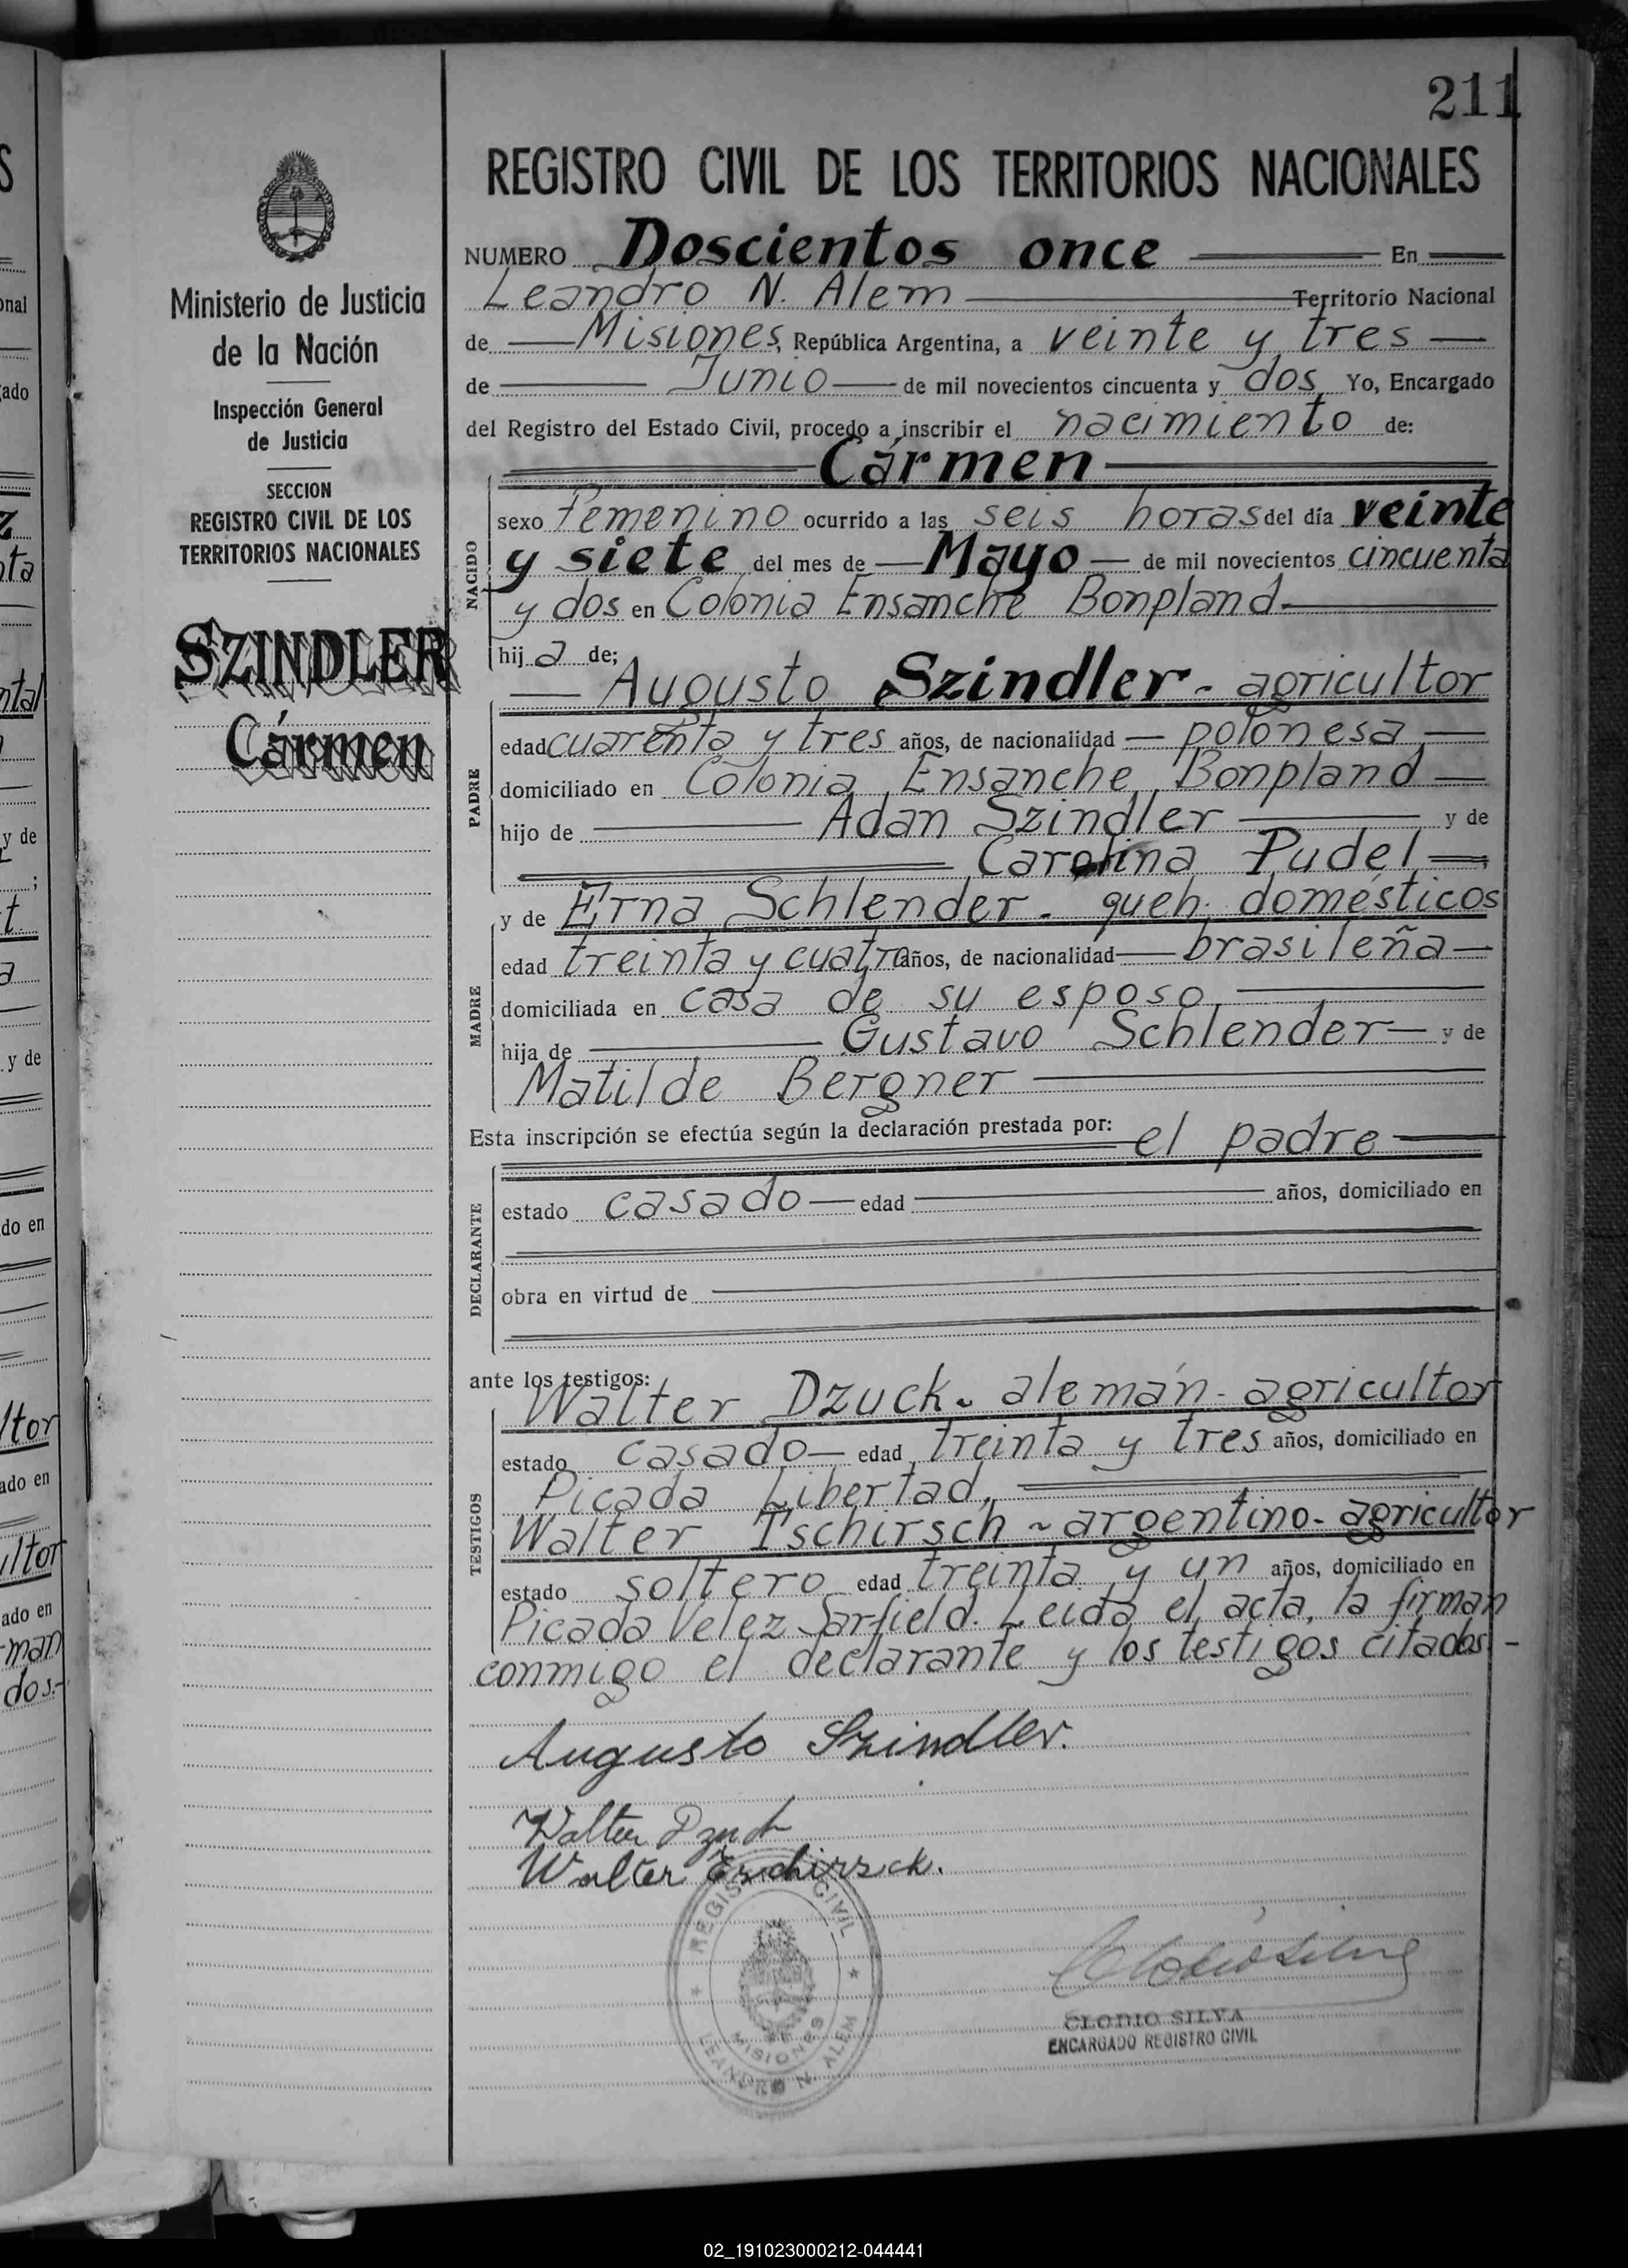 211
Ministerio de Justicia
de la Nación
Inspección General
de Justicia
SECCION
REGISTRO CIVIL DE LOS
TERRITORIOS NACIONALES
SZINDLER
Cármen
REGISTRO CIVIL DE LOS TERRITORIOS NACIONALES
NUMERO Doscientos once En
Leandro N. Alem Territorio Nacional
de Misiones, República Argentina, a veinte y tres
de Junio de mil novecientos cincuenta y dos Yo, Encargado
del Registro del Estado Civil, procedo a inscribir el nacimiento de:
Cármen
NACIDO
sexo Femenino ocurrido a las seis horas del día veinte
y siete del mes de Mayo de mil novecientos cincuenta
y dos en Colonia Ensanche Bonpland
hija de;
Augusto Szindler - agricultor
PADRE
edad cuarenta y tres años, de nacionalidad polonesa
domiciliado en Colonia Ensanche Bonpland
hijo de Adan Szindler y de
Carolina Pudel
y de Erna Schlender - queh. domésticos
MADRE
edad treinta y cuatro años, de nacionalidad brasileña
domiciliada en casa de su esposo
hija de Gustavo Schlender y de
Matilde Bergner
Esta inscripción se efectúa según la declaración prestada por: el padre
DECLARANTE
estado casado edad años, domiciliado en
obra en virtud de
ante los testigos:
Walter Dzuck - alemán - agricultor
TESTIGOS
estado casado edad treinta y tres años, domiciliado en
Picada Libertad,
Walter Tschirsch - argentino - agricultor
estado soltero edad treinta y un años, domiciliado en
Picada Velez Sarfield. Leida el acta, la firman
conmigo el declarante y los testigos citados.-
Augusto Szindler.
Walter Dzuck
Walter Tschirsch.
REGISTRO CIVIL
MISIONES
LEANDRO N. ALEM
CLODIO SILVA
ENCARGADO REGISTRO CIVIL
02_191023000212-044441